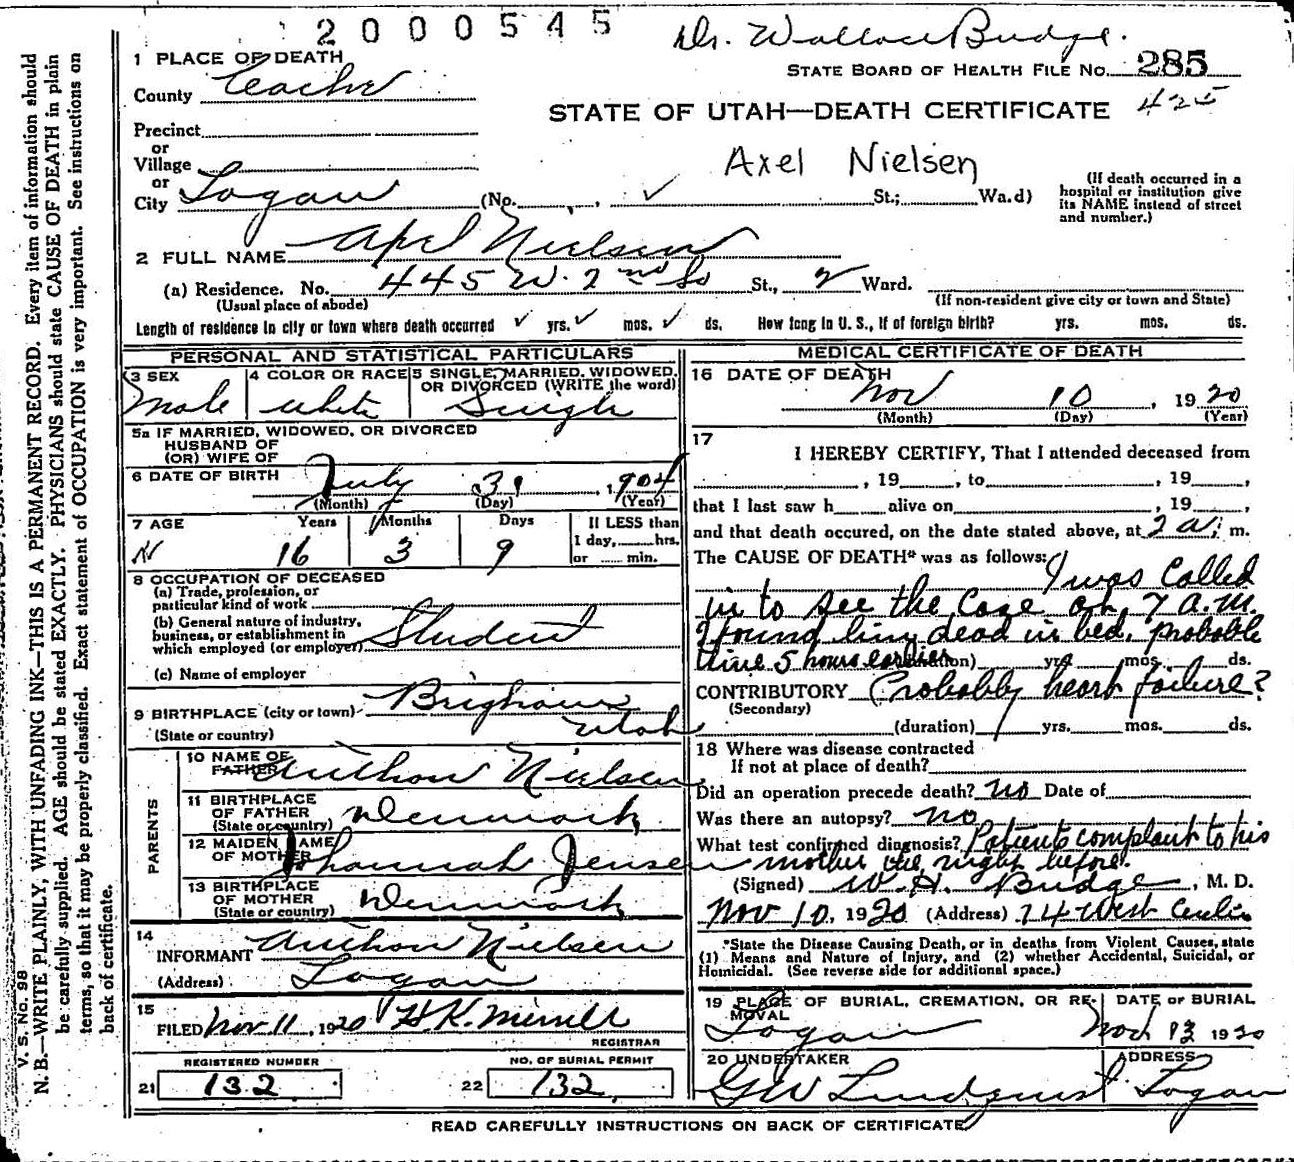 2000545
Dr. Wallace Budge.
1 PLACE OF DEATH
STATE BOARD OF HEALTH FILE NO. 285
County Cache
425
STATE OF UTAH—DEATH CERTIFICATE
Precinct
or
Village
Axel Nielsen
or
City Logan (No. , ✓ St.; Wa.d)
(If death occurred in a
hospital or institution give
its NAME instead of street
and number.)
2 FULL NAME Axel Nielsen
(a) Residence. No. 445 W. 2nd So St., 2 Ward.
(Usual place of abode)
(If non-resident give city or town and State)
Length of residence in city or town where death occurred ✓ yrs. ✓ mos. ✓ ds. How long in U. S., if of foreign birth? yrs. mos. ds.
PERSONAL AND STATISTICAL PARTICULARS
3 SEX
Male
4 COLOR OR RACE
White
5 SINGLE, MARRIED, WIDOWED,
OR DIVORCED (WRITE the word)
Single
5a IF MARRIED, WIDOWED, OR DIVORCED
HUSBAND OF
(OR) WIFE OF
6 DATE OF BIRTH July 31, 1904
(Month) (Day) (Year)
7 AGE Years Months Days If LESS than
1 day, hrs.
or min.
16 3 9
8 OCCUPATION OF DECEASED
(a) Trade, profession, or
particular kind of work
(b) General nature of industry,
business, or establishment in
which employed (or employer) Student
(c) Name of employer
9 BIRTHPLACE (city or town) Brigham
(State or country) Utah
PARENTS
10 NAME OF
FATHER Anthon Nielsen
11 BIRTHPLACE
OF FATHER
(State or country) Denmark
12 MAIDEN NAME
OF MOTHER Johannah Jensen
13 BIRTHPLACE
OF MOTHER
(State or country) Denmark
14
INFORMANT Anthon Nielsen
(Address) Logan
15
FILED Nov 11, 1920 H K. Merrill
REGISTRAR
REGISTERED NUMBER
21 132
NO. OF BURIAL PERMIT
22 132
MEDICAL CERTIFICATE OF DEATH
16 DATE OF DEATH
Nov 10, 1920
(Month) (Day) (Year)
17
I HEREBY CERTIFY, That I attended deceased from
, 19 , to , 19 ,
that I last saw h alive on , 19 ,
and that death occured, on the date stated above, at 2 a. m.
The CAUSE OF DEATH* was as follows: I was called
in to see the case at 7 A.M.
Found him dead in bed, probable
time 5 hours earlier (duration) yrs. mos. ds.
CONTRIBUTORY Probably heart failure?
(Secondary)
(duration) yrs. mos. ds.
18 Where was disease contracted
If not at place of death?
Did an operation precede death? no Date of
Was there an autopsy? no
What test confirmed diagnosis? Patients complaint to his
mother the night before.
(Signed) W. H. Budge, M. D.
Nov 10, 1920 (Address) 74 West Center
*State the Disease Causing Death, or in deaths from Violent Causes, state
(1) Means and Nature of Injury, and (2) whether Accidental, Suicidal, or
Homicidal. (See reverse side for additional space.)
19 PLACE OF BURIAL, CREMATION, OR RE-
MOVAL
Logan
DATE OF BURIAL
Nov 13 1920
20 UNDERTAKER
GW Lindquist
ADDRESS
Logan
READ CAREFULLY INSTRUCTIONS ON BACK OF CERTIFICATE
V. S. No. 98
N. B.—WRITE PLAINLY, WITH UNFADING INK—THIS IS A PERMANENT RECORD. Every item of information should
be carefully supplied. AGE should be stated EXACTLY. PHYSICIANS should state CAUSE OF DEATH in plain
terms, so that it may be properly classified. Exact statement of OCCUPATION is very important. See instructions on
back of certificate.